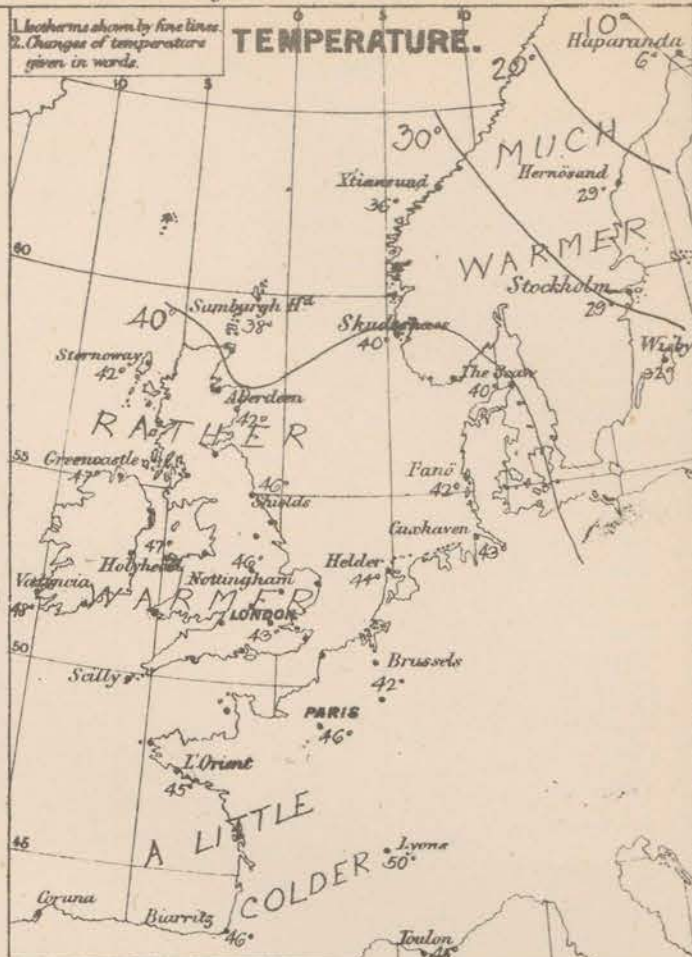 1. Isotherms shown by fine lines.
2. Changes of temperature
given in words.
TEMPERATURE.
10
5
0
5
10
10°
Haparanda
6°
20°
30°
MUCH
Hernösand
29°
Xtiansund
36°
60
WARMER
Stockholm
29°
40°
Sumburgh Hd
38°
Skudesnaes
40°
Wisby
32°
Stornoway
42°
The Scaw
40°
Aberdeen
42°
RATHER
55
Greencastle
47°
46°
Shields
Fanö
42°
Cuxhaven
43°
47°
Holyhead
46°
Nottingham
Helder
44°
Valencia
48°
WARMER
LONDON
43°
50
Scilly
Brussels
42°
PARIS
46°
L'Orient
45°
A LITTLE
45
Lyons
50°
COLDER
Coruna
Biarritz
46°
Toulon